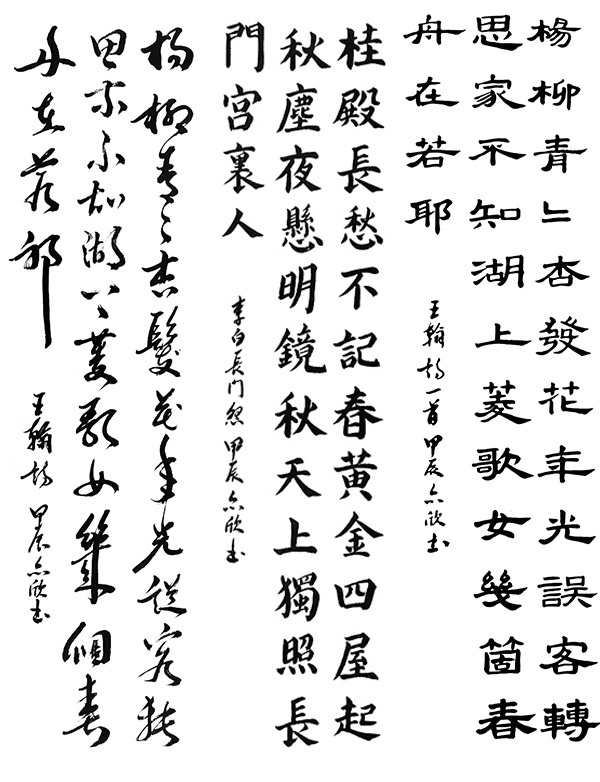 楊柳青〻杏發花年光誤客轉
思家不知湖上菱歌女幾箇春
舟在若耶
王翰詩一首甲辰亦欣書
桂殿長愁不記春黃金四屋起
秋塵夜懸明鏡秋天上獨照長
門宮裏人
李白長門怨甲辰亦欣書
楊柳青〻杏髮花年光誤客轉
思家不知湖上菱歌女幾個春
舟在若耶
王翰詩甲辰亦欣書